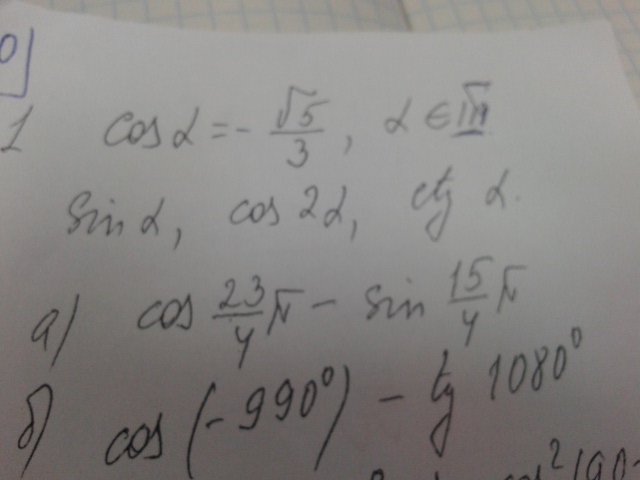 1 cos α = - √5/3, α ∈ III
sin α, cos 2α, ctg α.
а) cos 23/4 π - sin 15/4 π
б) cos (-990°) - tg 1080°